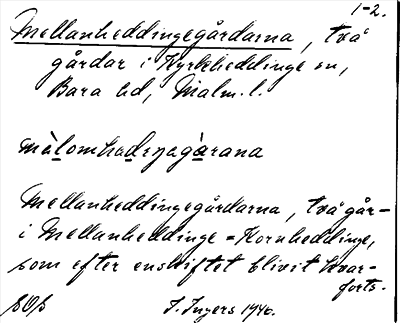 1-2.
Mellanheddingegårdarna, två
gårdar i Kyrkheddinge sn,
Bara hd, Malm. l.
Mellanheddingegårdarna, två går-
i Mellanheddinge = Kornheddinge,
som efter enskiftet blivit kvar-
forts.
I. Ingers 1940.